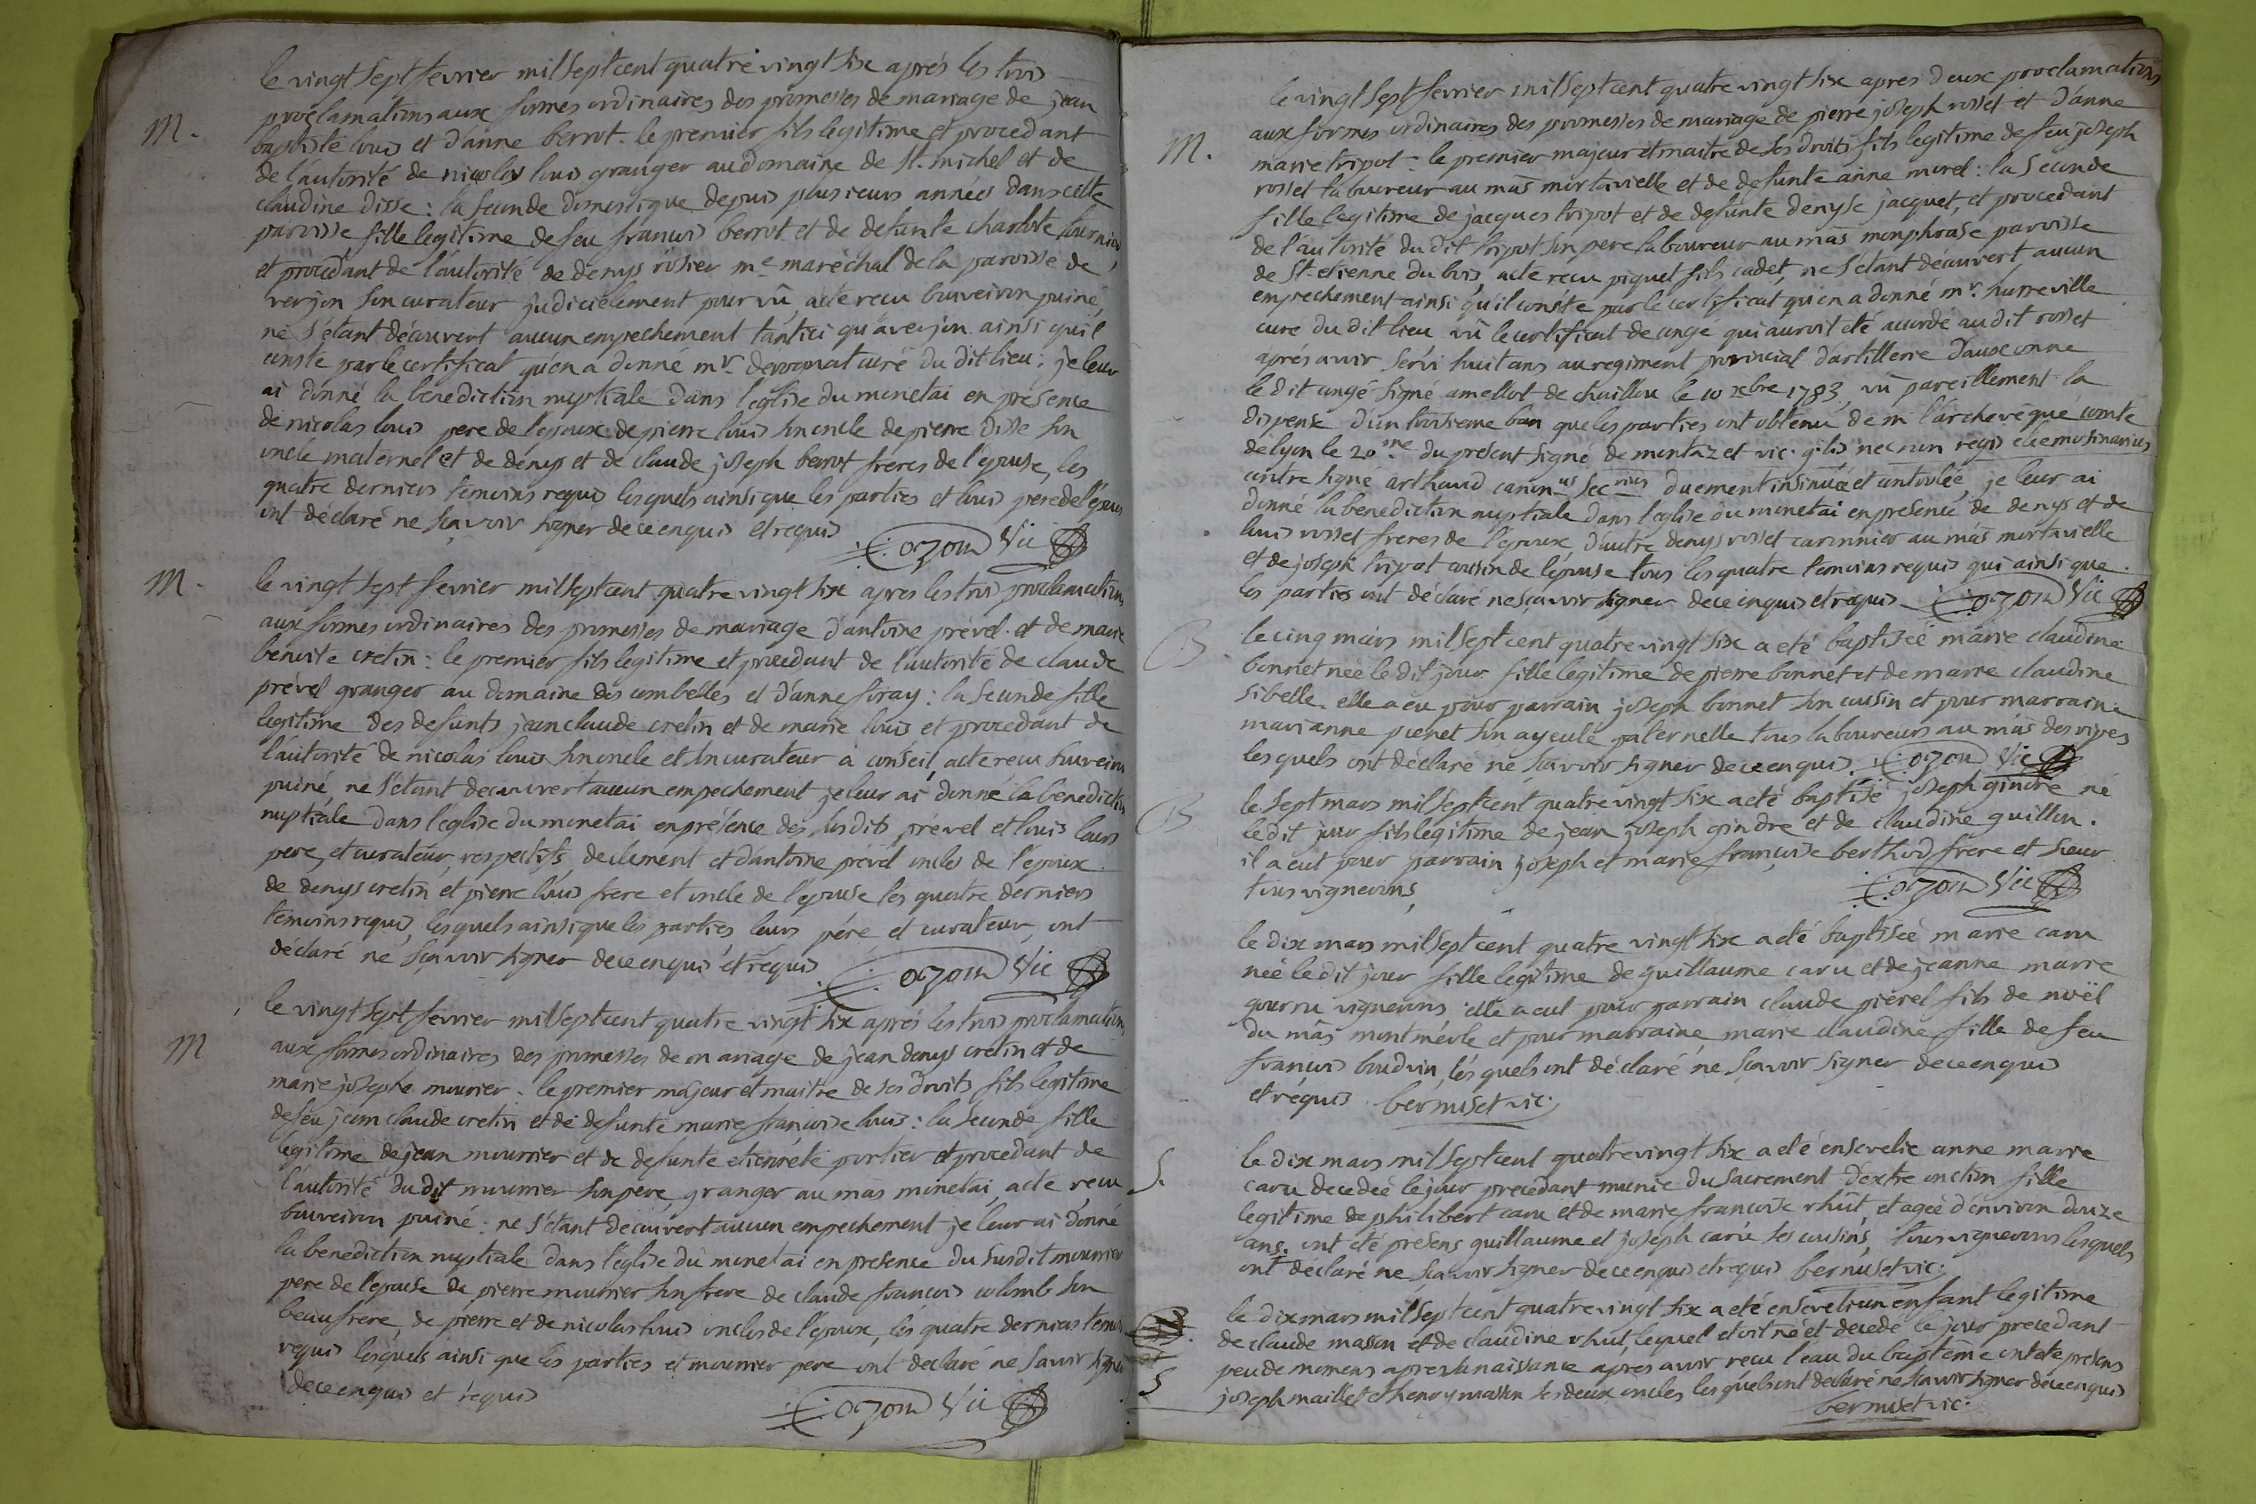 le vingt sept fevrier mil sept cent quatre vingt six aprés les trois
proclamations aux formes ordinaires des promesses de mariage de jean
M.
baptiste louis et d'anne berrot. le premier fils legitime et procedant
de l'autorité de nicolas louis granger au domaine de st. michel et de
claudine disse : la seconde domestique depuis plusieurs années dans cette
paroisse fille legitime de feu francois berrot et de defunte charlote
et procedant de l'autorité de denys rosier me maréchal de la paroisse de
verjon son curateur judicielement pourvû acte recu bouveiron puiné,
ne s'étant découvert aucun empechement tant ici qu'averjon ainsi qu'il
conste par le certificat qu'en a donné mr. curé du dit lieu : je leur
ai donné la benediction nuptiale dans l'eglise du monetai en présence
de nicolas louis pere de l'epoux de pierre louis son oncle de pierre disse son
oncle maternel et de dénys et de claude joseph berrot freres de l'epouse, les
quatre derniers temoins requis lesquels ainsi que les parties et louis pere de l'époux
ont déclaré ne sçavoir signer de ce enquis et requis
ozoux Vic
M.
le vingt sept fevrier mil sept cent quatre vingt six apres les trois proclamations
aux formes ordinaires des promesses de mariage d'antoine prével. et de marie
benoite cretin : le premier fils legitime et procedant de l'autorité de claude
prével granger au domaine des combelles et d'anne foray : la seconde fille
legitime des defunts jean claude cretin et de marie louis et procedant de
l'autorité de nicolas louis son oncle et son curateur a conseil, acte recu bouveiron
puiné, ne s'étant decouvert aucun empechement je leur ai donné la benediction
nuptiale dans l'eglise du monetai en présence des susdits prével et louis leurs
pere, et curateur, respectifs, de clement et d'antoine prével oncles de l'epoux.
de denys cretin et pierre louis frere et oncle de l'epouse les quatre derniers
temoins requis, lesquels ainsi que les parties leurs pére et curateur, ont
déclaré ne sçavoir signer de ce enquis et requis
ozoux Vic
le vingt sept fevrier mil sept cent quatre vingt six aprés les trois proclamations
M
aux formes ordinaires des promesses de mariage de jean denys cretin et de
marie josephe mournier : le premier majeur et maitre de ses droits fils legitime
de feu jean claude cretin et de defunte marie francoise louis : la seconde fille
legitime de jean mournier et de defunte etiennete portier et procedant de
l'autorité du dit mournier son pere, granger au mas monetai, acte reçu
bouveiron puiné : ne s'etant decouvert aucun empechement je leur ai donné
la benediction nuptiale dans l'église du monetai en presence du susdit mournier
pere de l'épouse de pierre mournier son frere de claude francois colomb son
beau frere, de pierre et de nicolas louis oncles de l'epoux, les quatre derniers temoins
requis lesquels ainsi que les parties et mournier pere ont declaré ne savoir signer
de ce enquis et requis
ozoux Vic
le vingt sept fevrier mil sept cent quatre vingt six apres deux proclamations
aux formes ordinaires des promesses de mariage de pierre joseph rosset et d'anne
M.
marie tripot : le premier majeur et maitre de ses droits fils legitime de feu joseph
rosset laboureur au mas mortavielle et de defunte anne morel : la seconde
fille legitime de jacques tripot et de defunte denyse jacquet, et procedant
de l'autorité du dit tripot son pere laboureur au mas monphrase paroisse
de st. etienne du bois, acte recu piquet fils cadet, ne s'etant decouvert aucun
empechement ainsi qu'il conste par le certificat qu'en a donné mr. hurreville
curé du dit lieu vû le certificat de conge qui auroit eté acordé au dit rosset
aprés avoir servi huit ans au regiment provincial d'artillerie d'auxonne
le dit congé signé amellot de chaillou le 10 xbre 1783, vû pareillement la
dispense d'un troisieme ban que les parties ont obtenu de m. l'archevéque comte
de lyon le 20me du présent signé de montazet vic. glis nec non regis eleemosinarius
contre signé arthaud canonus secrius duement insinuée et controlée, je leur ai
donné la benediction nuptiale dans l'eglise du monetai en presence de denys et de
louis rosset freres de l'epoux d'autre denys rosset caronnier au mas mortavielle
et de joseph tripot cousin de l'épouse tous les quatre temoins requis qui ainsi que
les parties ont déclaré ne sçavoir signer de ce enquis et requis ozoux Vic
B.
le cinq mars mil sept cent quatre vingt six a eté baptiseé marie claudine
bonnet neé le dit jour fille legitime de pierre bonnet et de marie claudine
sibelle. elle a eu pour parrain joseph bonnet son cousin et pour marraine
marianne pienet son ayeule paternelle tous laboureurs au mas des vives
lesquels ont déclaré ne sçavoir signer de ce enquis. ozoux Vic
B
le sept mars mil sept cent quatre vingt six a eté baptisé joseph gindre né
le dit jour fils legitime de jean joseph gindre et de claudine guillon.
il a eut pour parrain joseph et marie françoise berthod frere et soeur
tous vignerons,
ozoux Vic
le dix mars mil sept cent quatre vingt six a eté baptiseé marie caru
neé le dit jour fille legitime de guillaume caru et de jeanne marie
gourru vignerons elle a eut pour parrain claude pierel fils de noël
du mas montmérle et pour marraine marie claudine fille de feu
francois boudvin, les quels ont déclaré ne sçavoir signer de ce enquis
et requis. bernuset vic.
S.
le dix mars mil sept cent quatre vingt six a eté ensevelie anne marie
caru decedeé le jour precedant munie du sacrement d'extre onction fille
legitime de philibert caru et de marie francoise rhût, et ageé d'environ douze
ans. ont eté présens guillaume et joseph caru ses cousins, tous vignerons lesquels
ont déclaré ne sçavoir signer de ce enquis et requis bernuset vic.
le dix mars mil sept cent quatre vingt six a eté enseveli un enfant legitime
de claude masson et de claudine rhut, lequel etoit né et decedé le jour precedant
S
peu de momens apres sa naissance apres avoir recu l'eau du baptême ont eté présens
joseph maillet et henry masson ses deux oncles lesquels ont declaré ne sçavoir signer de ce enquis
bernuset vic.